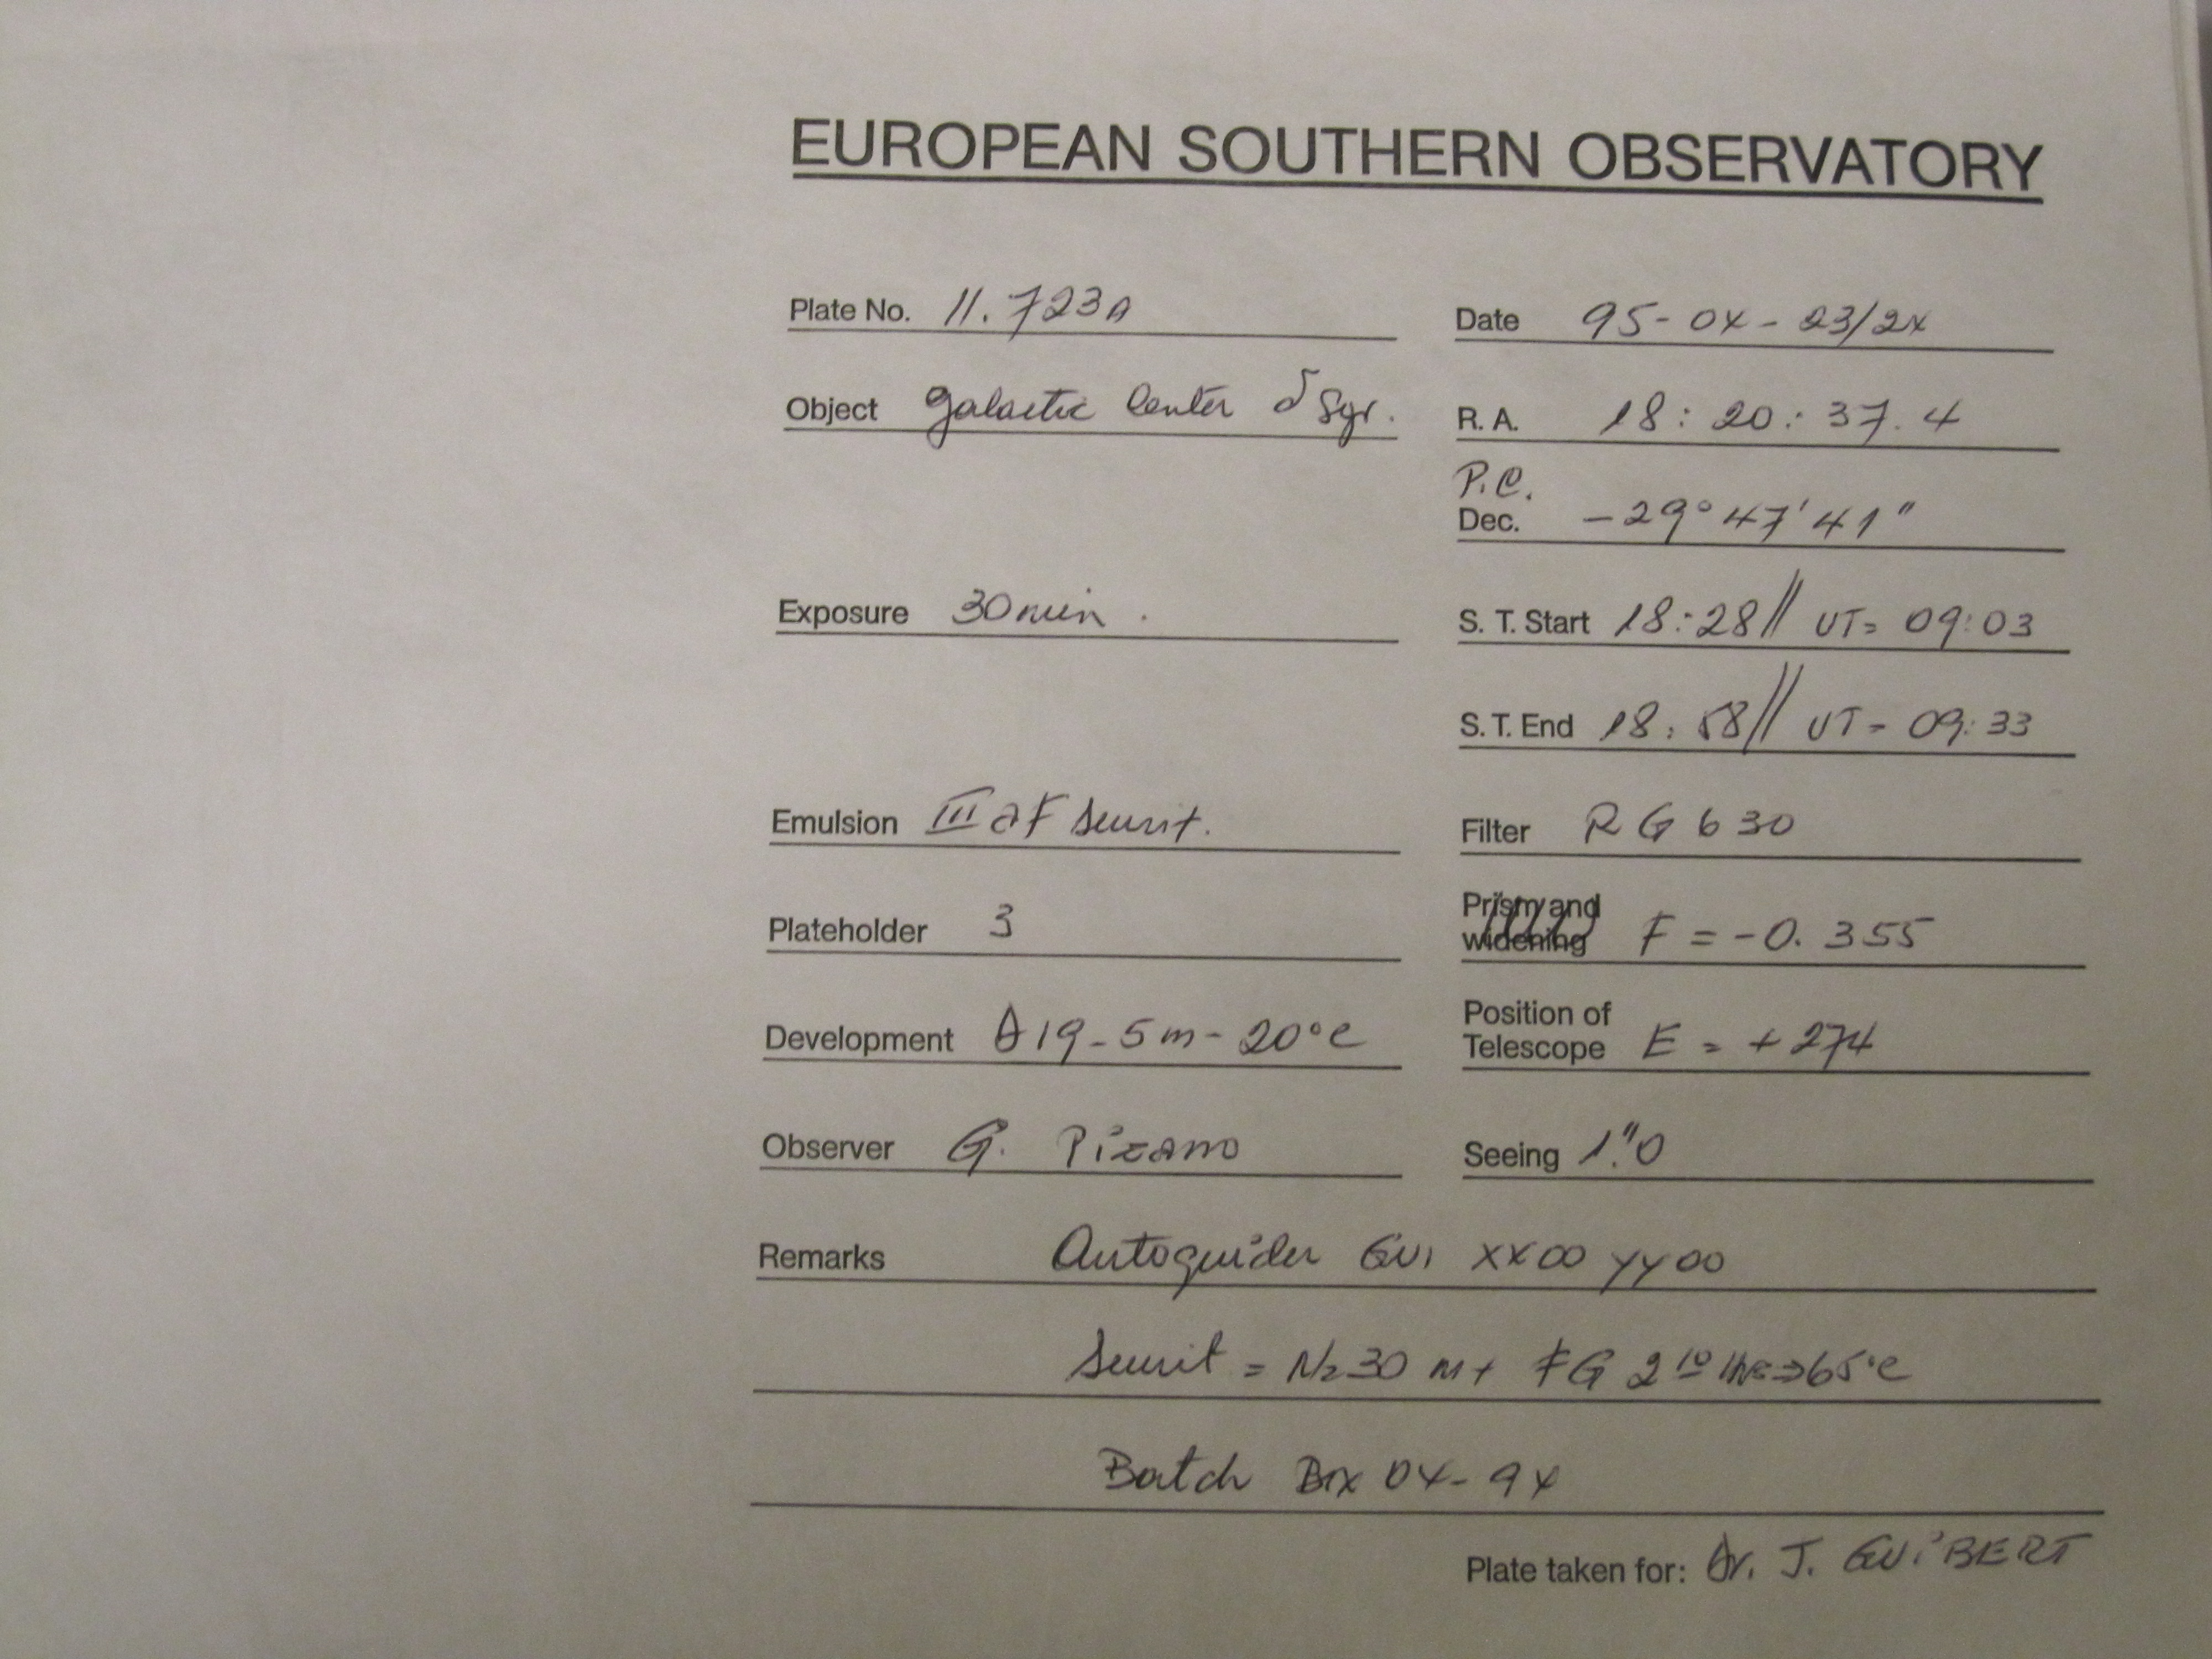 EUROPEAN SOUTHERN OBSERVATORY
Plate No. 11.723A
Date 95-04-23/24
Object galactic Center δ Sgr.
R. A. 18:20:37.4
P.C.
Dec. -29°47'41"
Exposure 30min.
S. T. Start 18:28// UT= 09:03
S. T. End 18:58// UT= 09:33
Emulsion III aF sensit.
Filter RG630
Plateholder 3
Prism and widening F = -0.355
Development D19-5m-20°C
Position of Telescope E = +274
Observer G. Pizarro
Seeing 1."0
Remarks Autoguider GUI XX00 YY00
Sensit = N2 30 m + FG 2 10 ⇒65°C
Batch Box 04-94
Plate taken for: Dr. J. GUIBERT